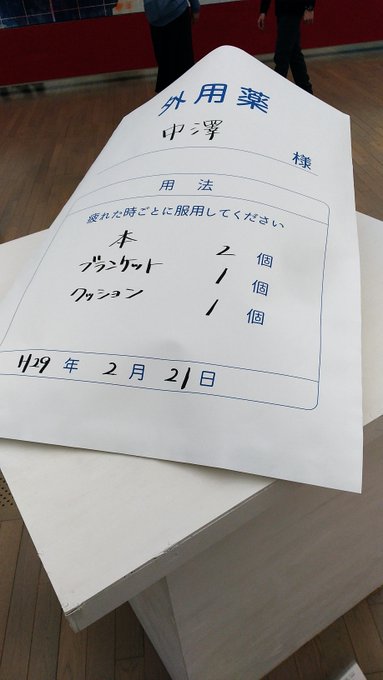 外用薬
中澤 様
用法
疲れた時ごとに服用してください
本 2 個
ブランケット 1 個
クッション 1 個
H29 年 2 月 21 日